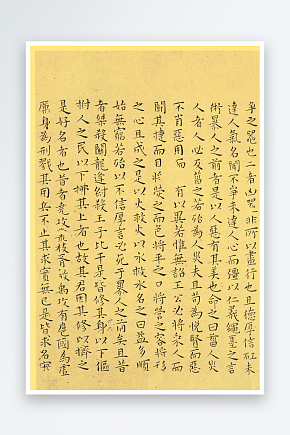 爭之器也二者凶器非所以盡行也且德厚信矼未
達人氣名聞不爭未達人心而彊以仁義繩墨之言
術暴人之前者是以人惡有其美也命之曰菑人菑
人者人必反菑之若殆為人菑夫且苟為悅賢而惡
不肖惡用而有以異若唯無詔王公必將乘人而
鬭其捷而目將熒之而色將平之口將營之容將形
之心且成之是以火救火以水救水名之曰益多順
始無窮若殆以不信厚言必死於暴人之前矣且昔
者桀殺關龍逢紂殺王子比干是皆修其身以下傴
拊人之民以下拂其上者也故其君因其修以擠之
是好名者也昔者堯攻叢枝胥敖禹攻有扈國為虛
厲身為刑戮其用兵不止其求實無已是皆求名實